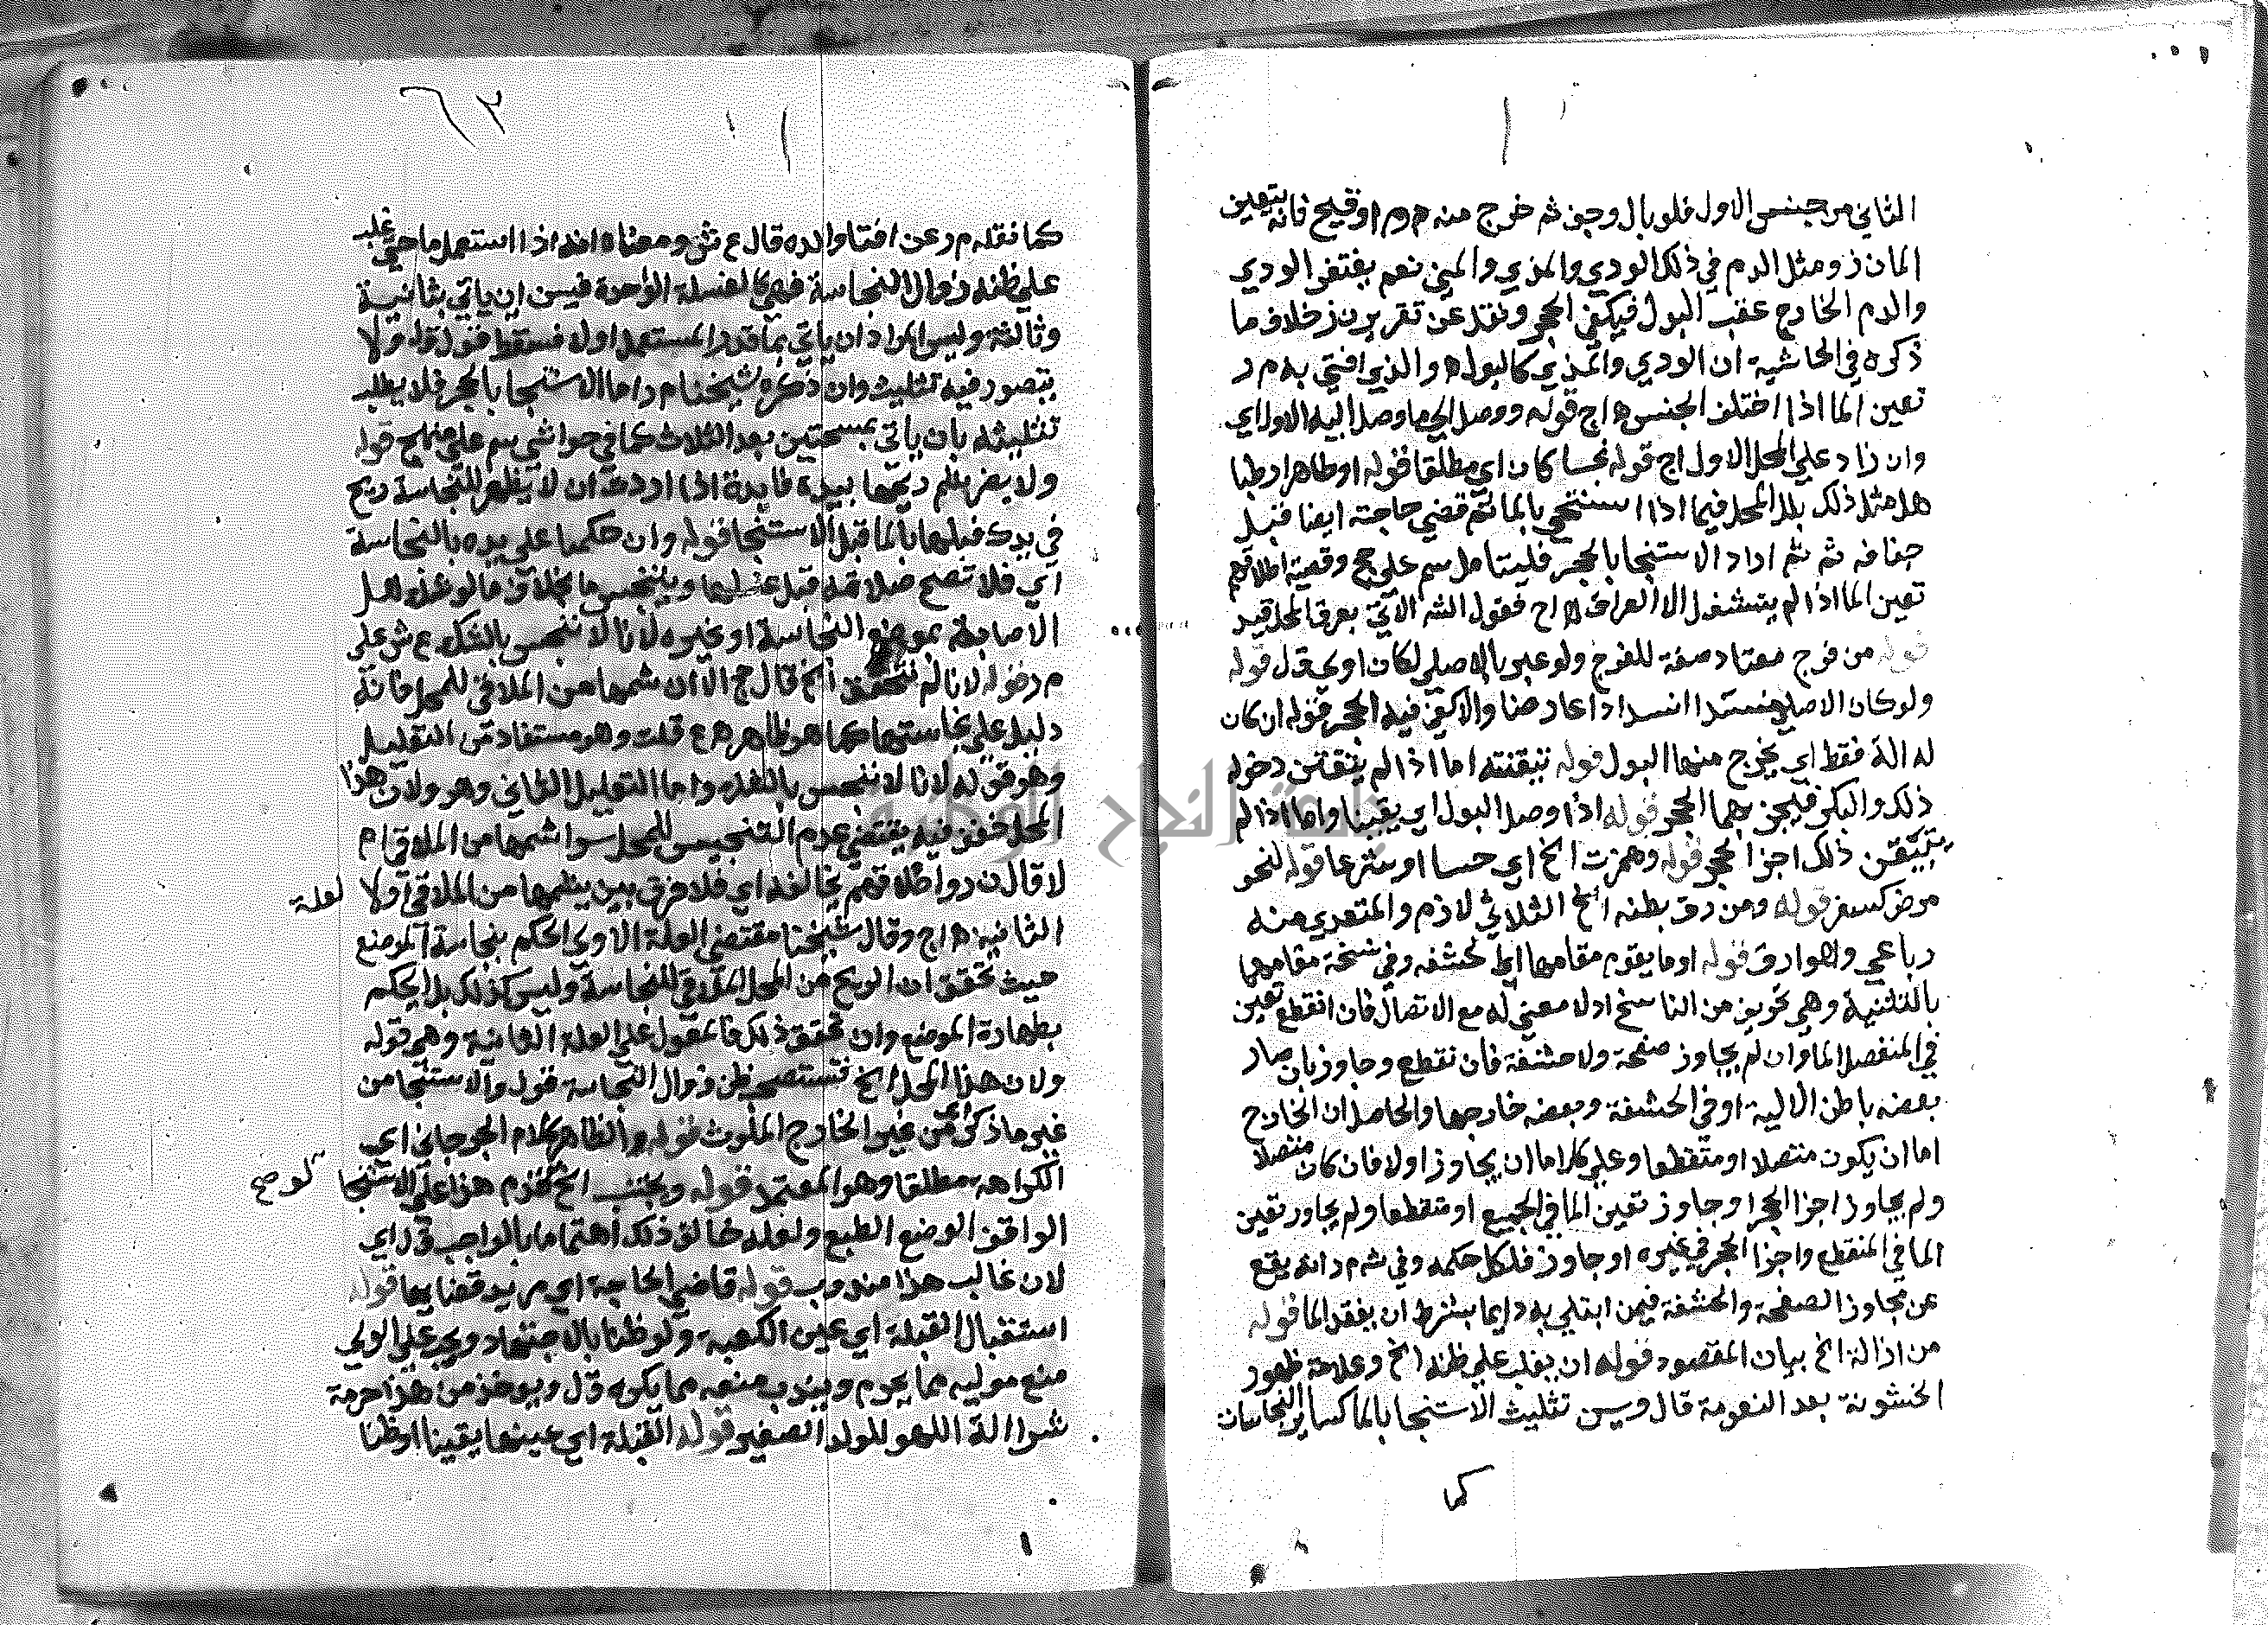 الثاني من جنس الاول فلو بال وجف ثم خرج منه دم او قيح فانه يتعين
الما ن ز ومثل الدم في ذلك الودي والمذي والمني نعم يغتفر الودي
والدم الخارج عقب البول فيكفي الحجر ونقل عن تقرير ن ز خلاف ما
ذكره في الحاشية ان الودي والمذي كالبول هو الذي افتى به م ر
تعين الما اذا اختلف الجنس ه ا ج قوله ووصل الي ما وصل اليه الاول اي
وان زاد علي المحل الاول ا ج قوله نجسا كان اي مطلقا قوله او طاهرا رطبا
هل مثل ذلك بلل المحل فيما اذا استنجي بالما ثم قضي حاجته ايضا قبل
جفافه ثم اراد الاستنجا بالحجر فليتامل سم علي حج وقضية اطلاقهم
تعين الما اذا لم يتشغل الا العرق ه ا ح فقول الشه الآتي بعرق المحل قيد
قوله من فرج معتاد صفة للفرج ولو عبر بالاصلي لكان اولي ق ل قوله
ولو كان الاصلي منسدا انسدادا عارضا والا كفي فيه الحجر قوله ان كان
له الة فقط اي يخرج منها البول قوله تيقنته اما اذا لم يتيقن دخوله
ذلك والبكر فيجزي بهما الحجر قوله اذا وصل البول اي يقينا واما اذا لم
يتيقن ذلك اجزا الحجر قوله وهمزت الخ اي حسا او شرعا قوله لنحو
مرض كسفر قوله ومن رق بطنه الخ الثلاثي لازم والمتعدي منه
رباعي واهو ارق قوله او ما يقوم مقامها اي الحشفه وفي نسخة مقامهما
بالتثنية وهي تحريف من الناسخ اذ لا معني له مع الاتصال فان انقطع تعين
في المنفصل الما وان لم يجاوز صفحة ولا حشفة فان نقطع وجاوز بان صار
بعضه باطن الالية او في الحشفة وبعضه خارجها والحاصل ان الخارج
اما ان يكون متصلا او متقطعا وعلي كل اما ان يجاوز او لا فان كان متصلا
ولم يجاوز اجزا الحجر او جاوز تعين الما في الجميع او متقطعا ولم يجاوز تعين
الما في المنقطع واجزا الحجر في غيره او جاوز فلكل حكمه وفي شه م ر انه يقع
عن مجاوز الصفحة والحشفة فيمن ابتلي به دايما بشرط ان يفقد الما قوله
من ازالة الخ بيان المقصود قوله ان يغلب علي ظنه الخ وعلامة ظهور
الخشونة بعد النعومة قال ويسن تثليث الاستنجا بالما كساير النجاسات
كما
٦٢
كما نقله م ر عن افتا والده قال ع ش ومعناه انه اذا استعمل ما حتي غلب
علي ظنه زوال النجاسة فهي كالغسلة الواحدة فيسن ان ياتي بثانية
وثالثة وليس المراد ان ياتي بما قدر المستعمل اولا فسقط قول ق ل ولا
يتصور فيه تثليث وان ذكره شيخنا م ر اما الاستنجا بالحجر فلا يطلب
تثليثه بان ياتي بمسحتين بعد الثلاث كما في حواشي سم علي منهج قوله
ولا يضر شم ريحها بيده فايدة اذا اردت ان لا يظهر للنجاسة ريح
في يدك فبلها بالما قبل الاستنجا قوله وان حكمنا علي يده بالنجاسة
اي فلا تصح صلاته قبل غسلها ويتنجس ما لاقاها بخلاف ما لو شك هل
الاصابة بموضع النجاسة او غيره لانا لا ننجس بالشك ع ش علي
م ر قوله لانا لم نتحقق الخ قال ح ج الا ان شمها من الملاقي للمحل فانه
دليل علي نجاستهما كما هو ظاهر ه ع قلت وهو مستفاد من التعليل
وهو قوله لانا لا ننجس بالشك واما التعليل الثاني وهو ولان هذا
المحل خفف فيه يقتضي عدم التنجيس للمحل سوا شمها من الملاقي ام
لا قال ن ز واطلاقهم يخالفه اي فلا فرق بين شمها من الملاقي او لا
لعلة
الثانية ه ا ج وقال شيخنا مقتضي العلة الاولي الحكم بنجاسة الموضع
حيث تحقق ان الريح من المحل الملاقي للنجاسة وليس كذلك بل يحكم
بطهارة الموضع وان تحقق ذلك فالمعول علي العلة الثانية وهي قوله
ولان هذا المحل الخ فتستصحب ظن زوال النجاسة قوله والاستنجا من
غير ما ذكر اي من غير الخارج الملوث قوله والظاهر كلام الجرجاني اي
الكراهة مطلقا وهو المعتمد قوله ويجتنب الخ قدم هذا علي الاستنجا
لو صح
الوافق الوضع الطبع ولعله خالف ذلك اهتماما بالواجب ق ل اي
لان غالب هذا مندوب قوله قاضي الحاجة اي مريد قضايها قوله
استقبال القبلة اي عين الكعبة ولو ظنا بالاجتهاد ويجب علي الولي
منع موليه مما يحرم ويندب منعه مما يكره ق ل ويوخذ من هذا حرمة
شرا الة اللهو للولد الصغير قوله القبلة اي عينها يقينا او ظنا